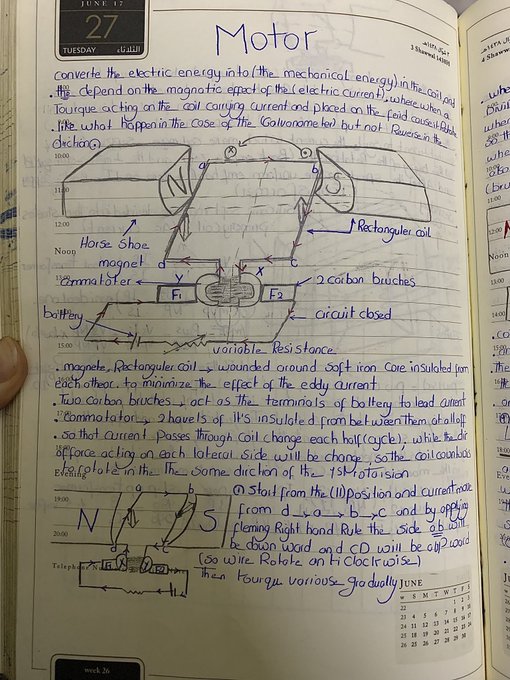 JUNE 17
27
TUESDAY الثلاثاء
3 Shawwal 1438H
Motor
converte the electric energy into (the mechanical energy) in the coil, and
. the depend on the magnatic effect of the (electric current), where when a
Tourque acting on the coil carrying current and placed on the feild cause it Rotate
. like what happen in the case of the (Galvonometer) but not Reverse in the
dirction.
10:00
11:00
Noon
13:00
15:00
N
S
a
b
c
d
Rectanguler coil
Horse Shoe
magnet
commatoter
Y
X
F1
F2
2 carbon bruches
battery
circuit closed
variable Resistance.
. magnete, Rectanguler coil → wounded around soft iron core insulated from
each otheor. to minimize the effect of the eddy current
. Two carbon bruches → act as the terminals of battery to lead current
. commotator → 2 havels of it's insulated from between them at all off
. so that current passes through coil change each half (cycle), while the dir
of force acting on each lateral side will be change, so the coil
to rotate in the The same dirction of the
Evening
19:00
20:00
N
S
b
d
c
F1
X
Y
F2
① Start from the (11) position and current move
from d → a → b → c and by applying
fleming Right hand Rule the side ab will
be down word and CD will be up word
(so wire Rotate anti Clockwise)
then tourque variouse gradually
JUNE
w S M T W T F S
22 1 2 3
23 4 5 6 7 8 9 10
24 11 12 13 14 15 16 17
25 18 19 20 21 22 23 24
26 25 26 27 28 29 30
week 26